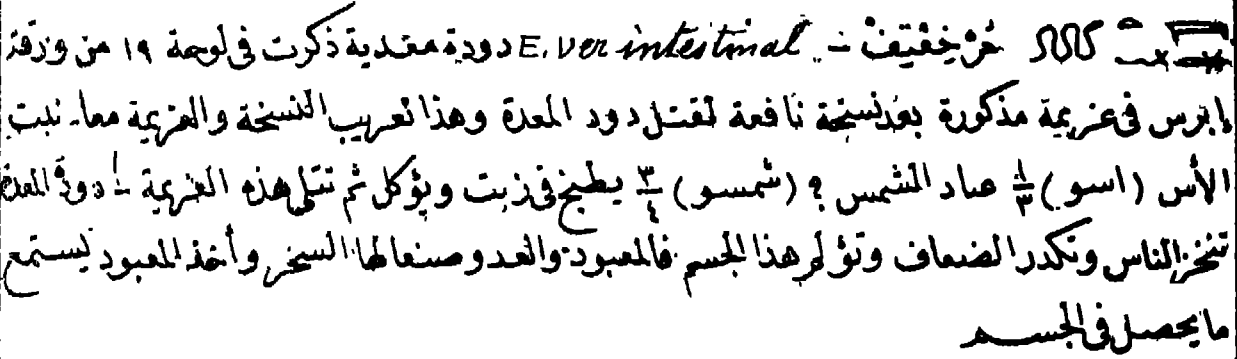 خرخفتيف - E. ver intestinal دودة معدية ذكرت فى لوحة ١٩ من ورقة
إبرس فى عزيمة مذكورة بعد نسخة نافعة لقتل دود المعدة وهذا تعريب النسخة والعزيمة معا. نبت
الأس (اسو) ١/٣ عباد الشمس ? (شمسو) ٣/٤ يطبخ فى زبت ويؤكل ثم تتلى هذه العزيمة - دودة المعدة
تنخز الناس وتكدر الضعاف وتؤلم هذا الجسم فالمعبود والعدو صنعا لها السحر وأخذ المعبود يستمع
ما يحصل فى الجسم